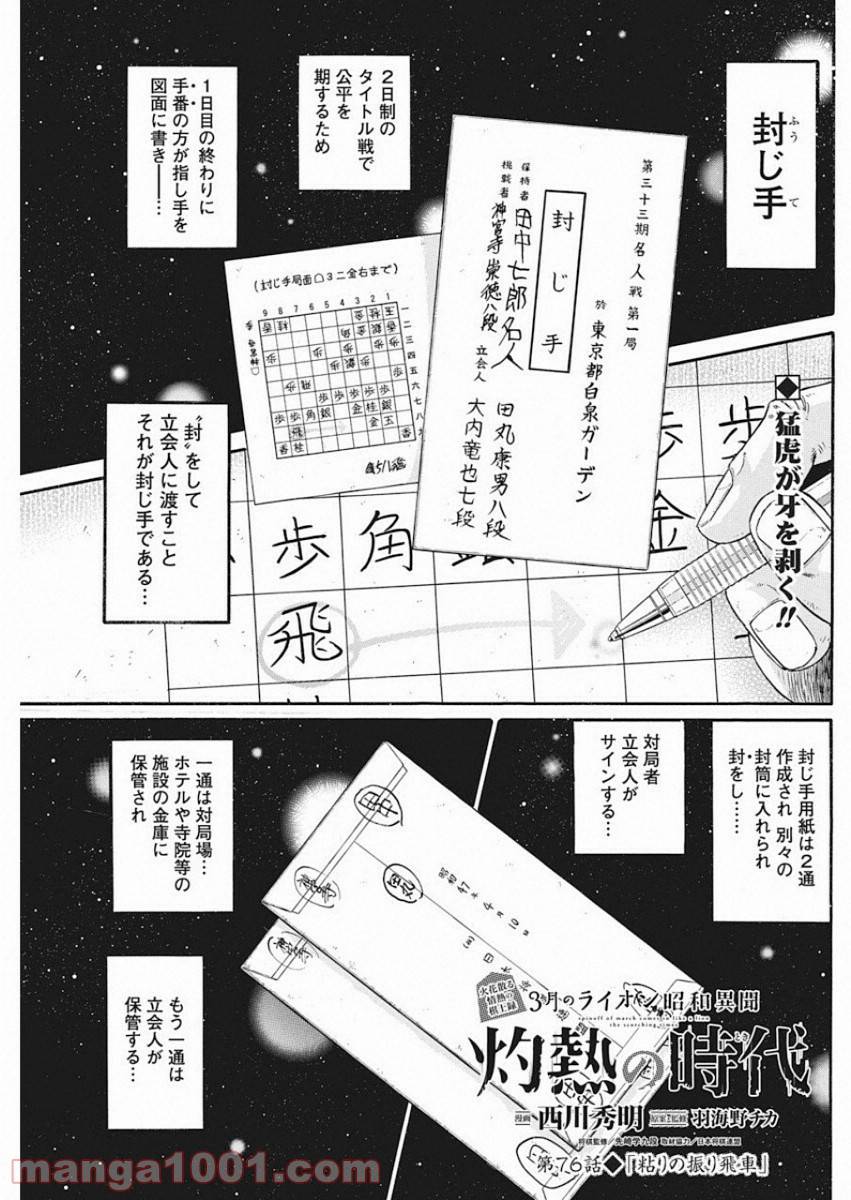 封じ手
ふう
て
2日制の
タイトル戦で
公平を
期するため
1日目の終わりに
手番の方が指し手を
図面に書き――…
第三十三期名人戦第一局
於 東京都白泉ガーデン
封じ手
保持者 田中七郎名人
挑戦者 神宮寺崇徳八段
立会人
田丸康男八段
大内竜也七段
(封じ手局面☖3二金右まで)
9 8 7 6 5 4 3 2 1
◆猛虎が牙を剥く!!
〝封〟をして
立会人に渡すこと
それが封じ手である…
歩
金
歩
角
歩
飛
封じ手用紙は2通
作成され 別々の
封筒に入れられ
封をし……
対局者
立会人が
サインする…
一通は対局場…
ホテルや寺院等の
施設の金庫に
保管され
もう一通は
立会人が
保管する…
田中
神宮寺
田丸
昭和47年4月10日
火花散る
情熱の
棋士録
3月のライオン昭和異聞
spinoff of march comes in like a lion
the scorching times
灼熱の時代
とき
漫画 西川秀明 原案・監修 羽海野チカ
将棋監修/先崎学九段 取材協力/日本将棋連盟
第76話◆「粘りの振り飛車」
manga1001.com